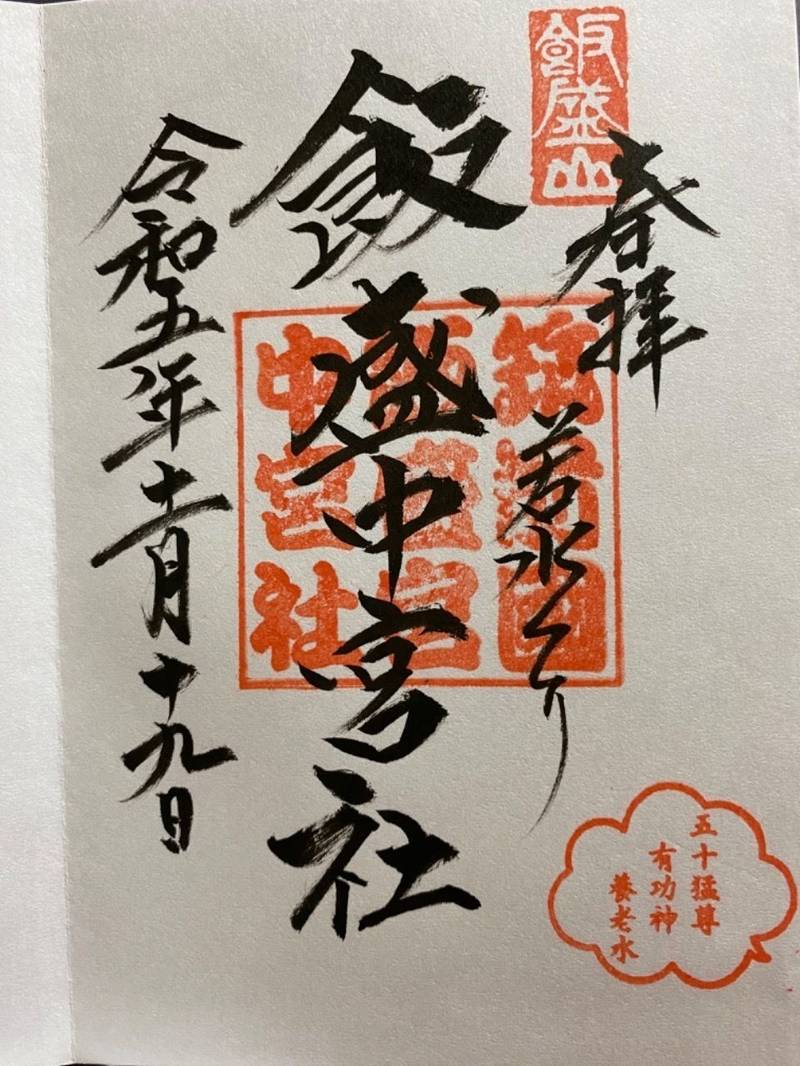 飯盛山
奉拝
若水くり
飯盛中宮社
筑前國
飯盛宮
中宮社
令和五年十一月十九日
五十猛尊
有功神
養老水